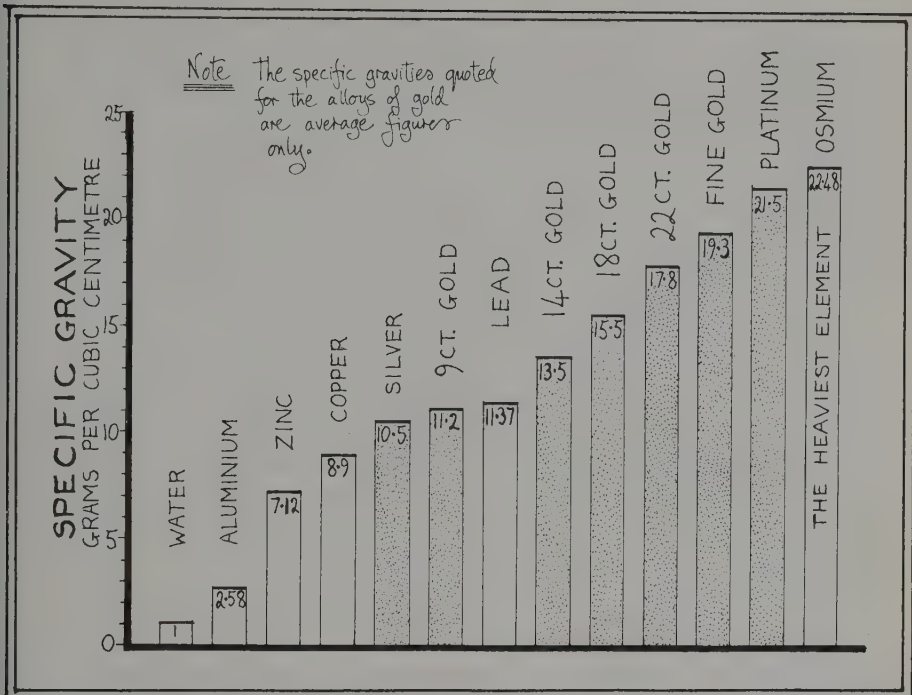 Note The specific gravities quoted
for the alloys of gold
are average figures
only.
SPECIFIC GRAVITY
GRAMS PER CUBIC CENTIMETRE
25
20
15
10
5
0
WATER
1
ALUMINIUM
2·58
ZINC
7·12
COPPER
8·9
SILVER
10·5
9CT. GOLD
11·2
LEAD
11·37
14CT. GOLD
13·5
18CT. GOLD
15·5
22CT. GOLD
17·8
FINE GOLD
19·3
PLATINUM
21·5
OSMIUM
22·48
THE HEAVIEST ELEMENT